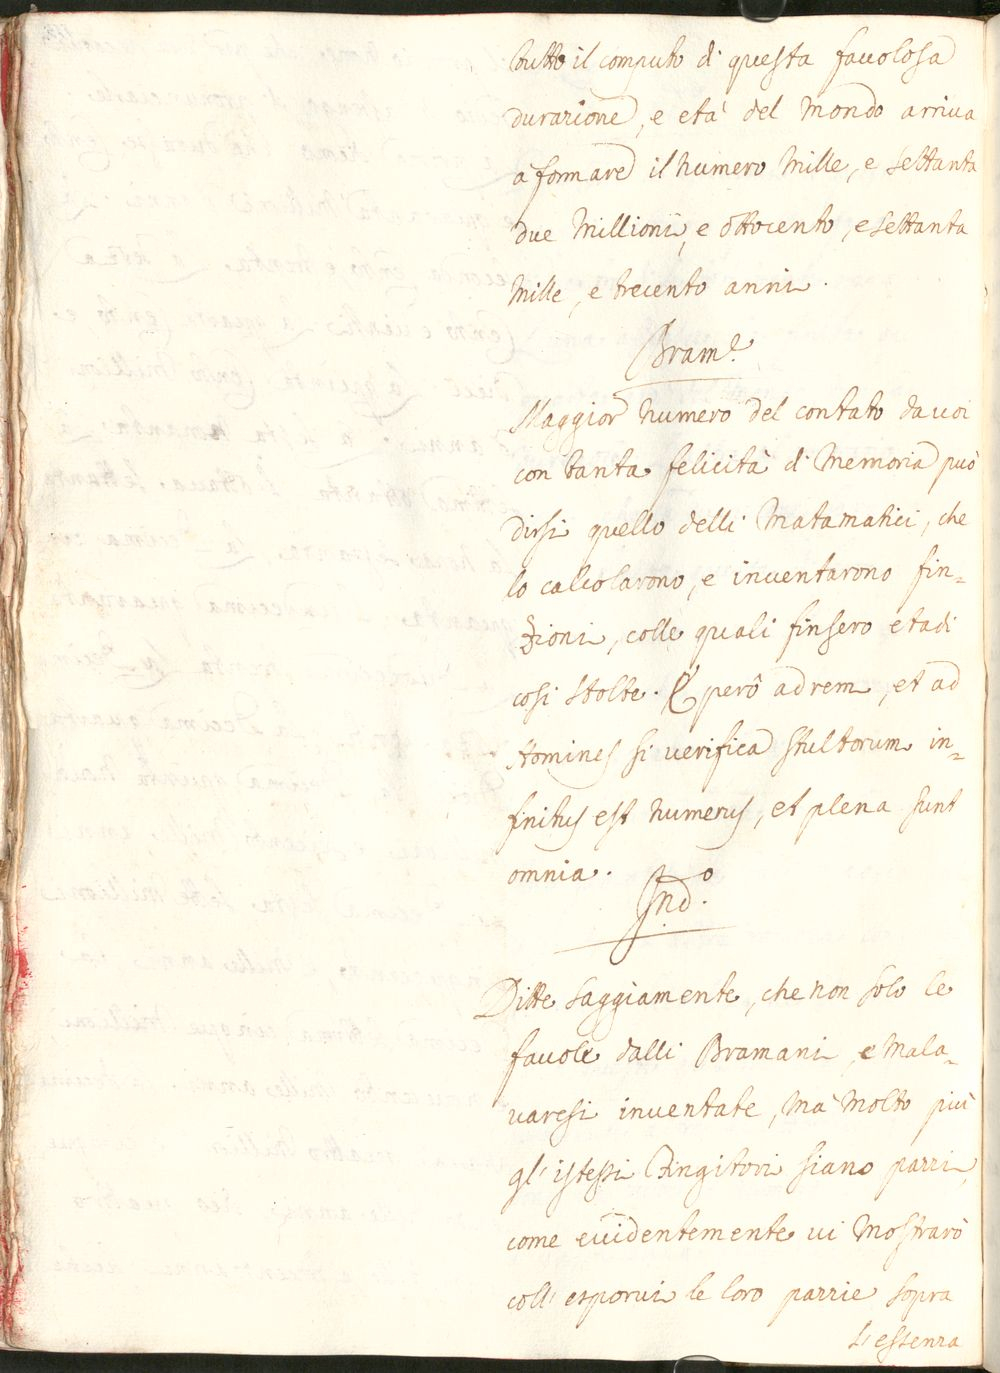 tutto il computo di questa fauolosa
durazione, e età del Mondo arriua
à formare il numero Mille, e settanta
due Millioni, e ottocento, e settanta
Mille, e trecento anni.
Bram.e
Maggior numero del contato da uoi
con tanta felicità di Memoria può
dirsi quello delli Matamatici, che
lo calcolarono, e inuentarono fin-
zioni, colle quali finsero etadi
cosi stolte. E però ad rem, et ad
Homines si uerifica stultorum in-
finitus est numerus, et plena sunt
omnia.
Ind.o
Ditte saggiamente, che non solo le
fauole dalli Bramani, e Mala-
uaresi inuentate, mà Molto più
gl'istessi Fingitori siano pazzi,
come euidentemente ui Mostrarò
coll'esporui le loro pazzie sopra
l'essenza